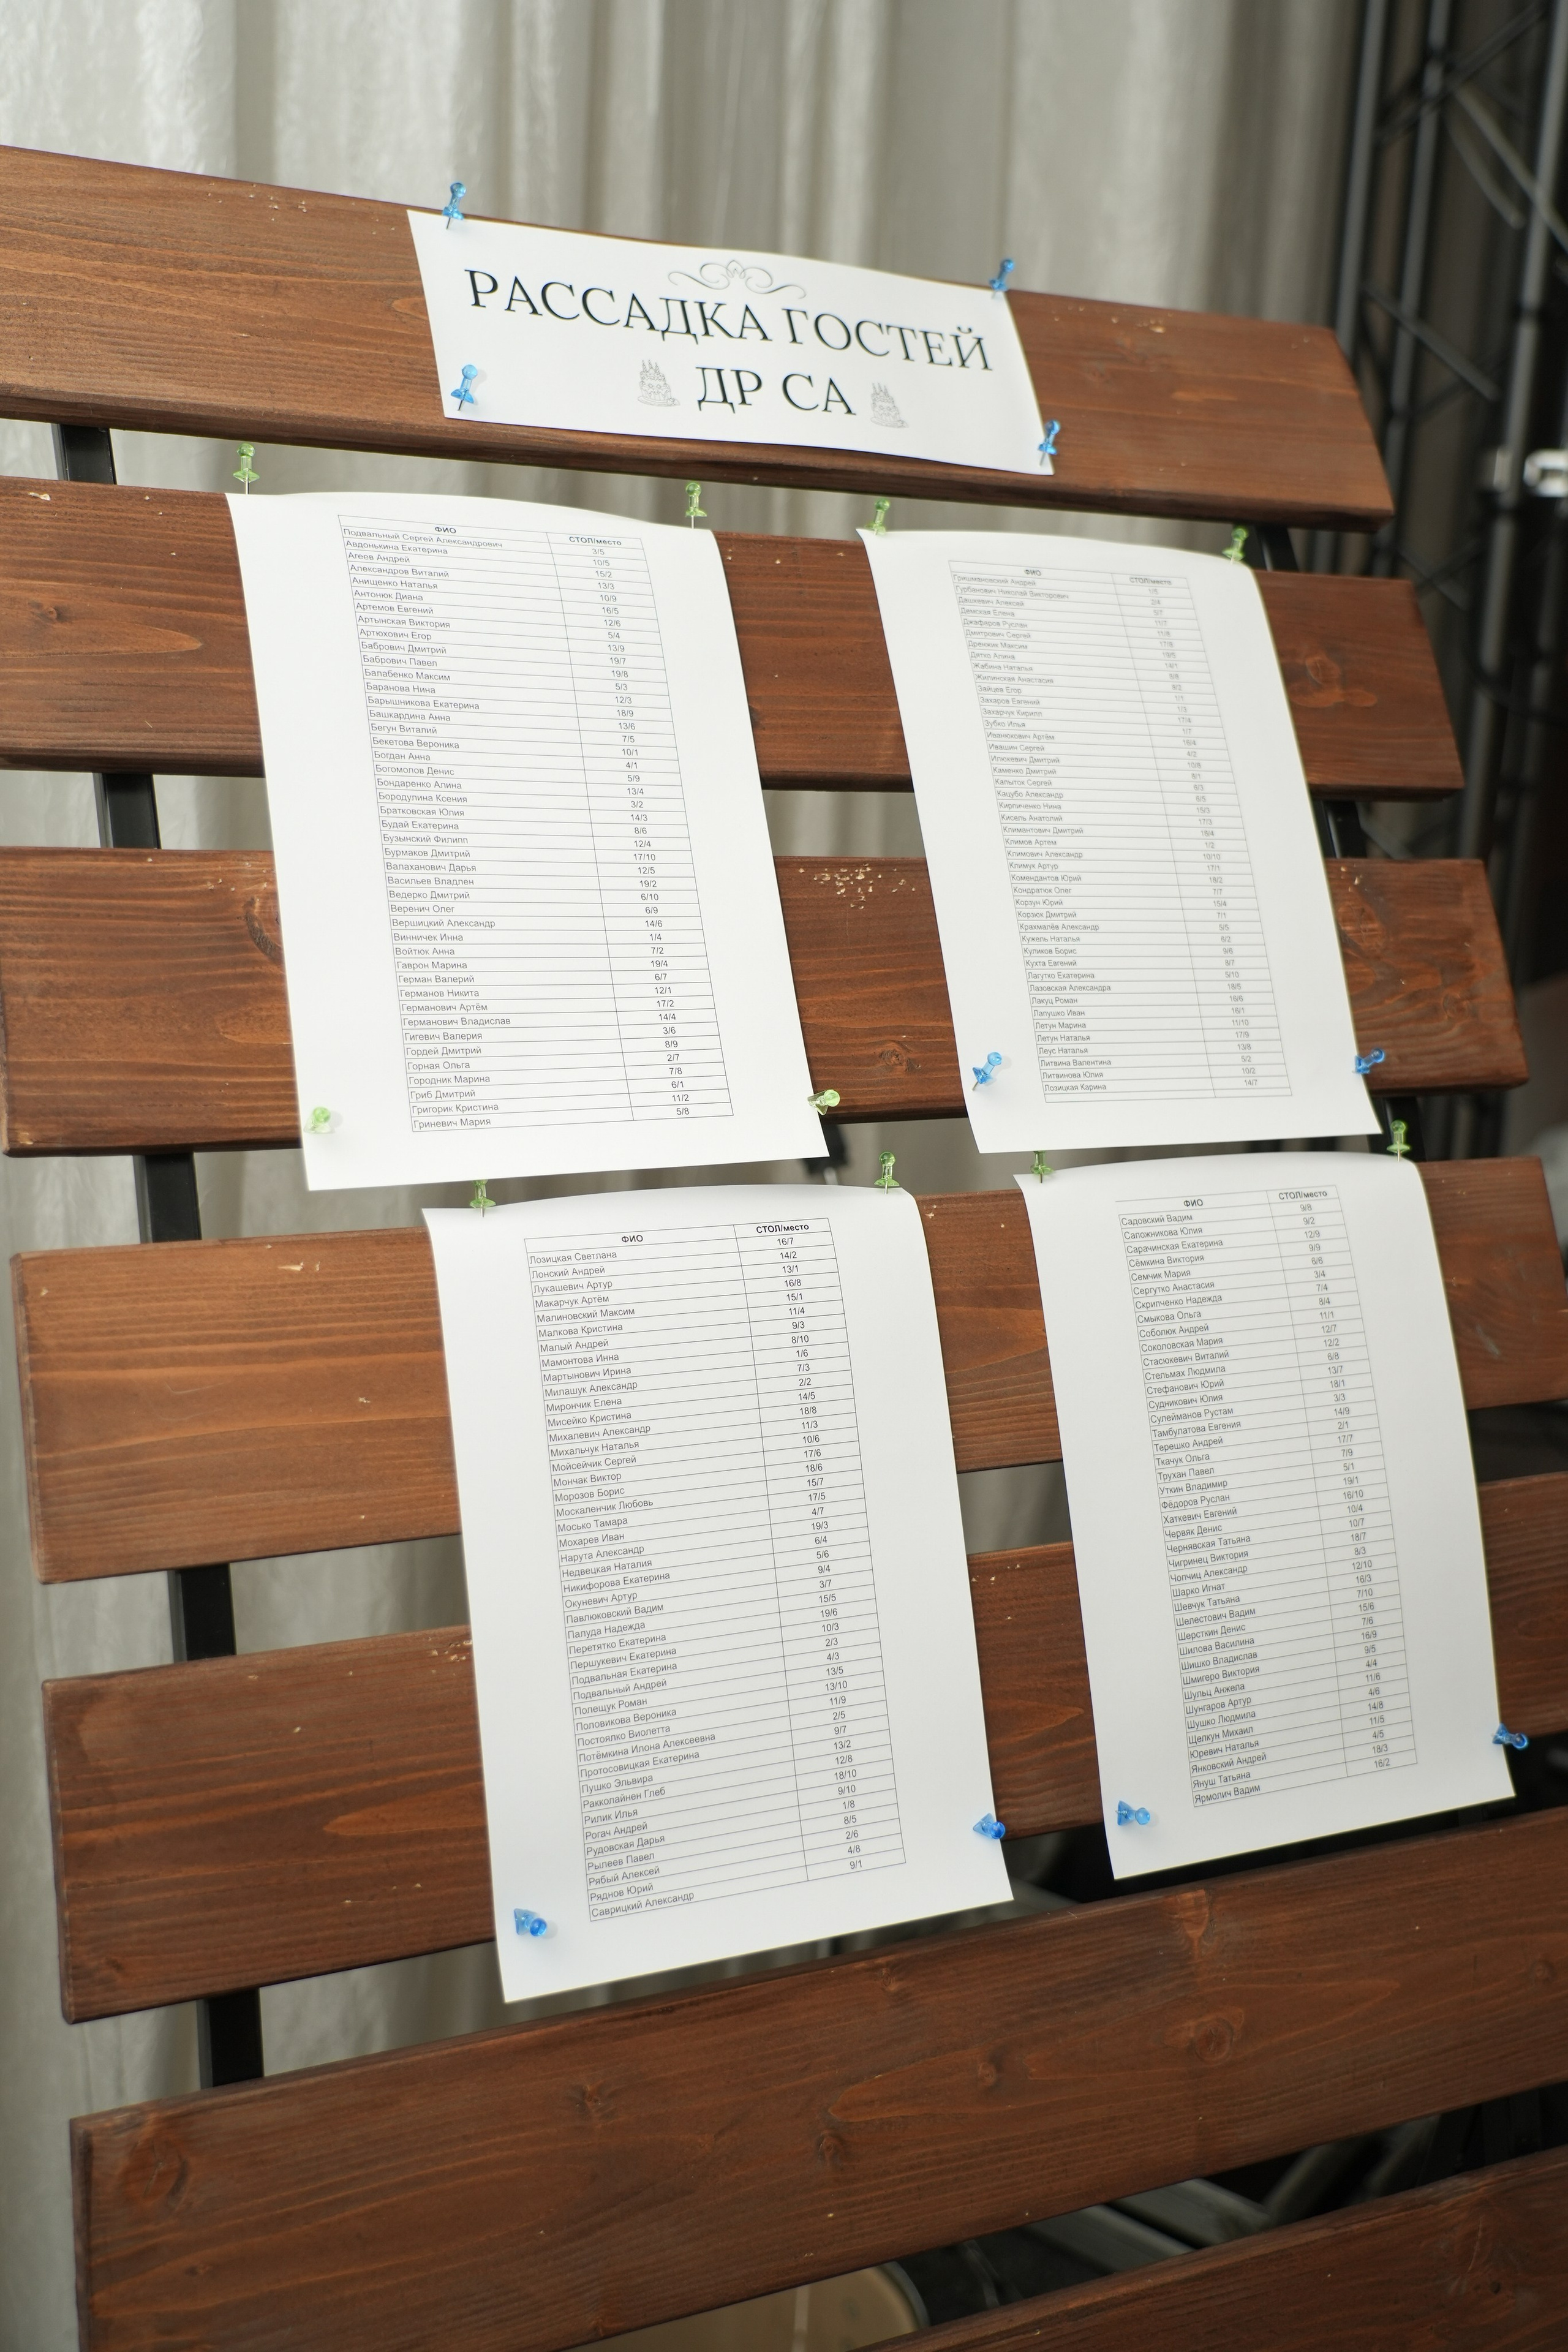 РАССАДКА ГОСТЕЙ
ДР СА
ФИО СТОЛ/место
Подвальный Сергей Александрович 3/5
Авдонькина Екатерина 10/5
Агеев Андрей 15/2
Александров Виталий 13/3
Анищенко Наталья 10/9
Антонюк Диана 16/5
Артемов Евгений 12/6
Артынская Виктория 5/4
Артюхович Егор 13/9
Бабрович Дмитрий 19/7
Бабрович Павел 19/8
Балабенко Максим 5/3
Баранова Нина 12/3
Барышникова Екатерина 18/9
Башкардина Анна 13/6
Бегун Виталий 7/5
Бекетова Вероника 10/1
Богдан Анна 4/1
Богомолов Денис 5/9
Бондаренко Алина 13/4
Бородулина Ксения 3/2
Братковская Юлия 14/3
Будай Екатерина 8/6
Бузынский Филипп 12/4
Бурмаков Дмитрий 17/10
Валаханович Дарья 12/5
Васильев Владлен 19/2
Ведерко Дмитрий 6/10
Веренич Олег 6/9
Вершицкий Александр 14/6
Винничек Инна 1/4
Войтюк Анна 7/2
Гаврон Марина 19/4
Герман Валерий 6/7
Германов Никита 12/1
Германович Артём 17/2
Германович Владислав 14/4
Гигевич Валерия 3/6
Гордей Дмитрий 8/9
Горная Ольга 2/7
Городник Марина 7/8
Гриб Дмитрий 6/1
Григорик Кристина 11/2
Гриневич Мария 5/8
ФИО СТОЛ/место
Андрей
Гурбанович Николай Викторович 2/4
Дашкевич Алексей
Демская Елена 11/7
Джафаров Руслан 11/8
Дмитрович Сергей 17/8
Максим 19/5
Дятко Алина 14/1
Жабина Наталья 8/8
Жилинская Анастасия 8/2
Зайцев Егор 1/1
Захаров Евгений 1/3
Захарчук Кирилл 17/4
Зубко Илья 1/7
Иванюкович Артём 16/4
Ивашин Сергей 4/2
Илюкевич Дмитрий 10/8
Каменко Дмитрий 8/1
Капыток Сергей 6/3
Кацубо Александр 6/5
Кирпиченко Нина 15/3
Кисель Анатолий 17/3
Климантович Дмитрий 18/4
Климов Артем 1/2
Климович Александр 10/10
Климук Артур 17/1
Комендантов Юрий 18/2
Кондратюк Олег 7/7
Корзун Юрий 15/4
Корзюк Дмитрий 7/1
Крахмалёв Александр 5/5
Кужель Наталья 6/2
Куликов Борис 9/6
Кухта Евгений 8/7
Лагутко Екатерина 5/10
Лазовская Александра 18/5
Лакуц Роман 16/6
Лапушко Иван 16/1
Летун Марина 11/10
Летун Наталья 17/9
Леус Наталья 13/8
Литвина Валентина 5/2
Литвинова Юлия 10/2
Лозицкая Карина 14/7
ФИО СТОЛ/место
Лозицкая Светлана 16/7
Лонский Андрей 14/2
Лукашевич Артур 13/1
Макарчук Артём 16/8
Малиновский Максим 15/1
Малкова Кристина 11/4
Малый Андрей 9/3
Мамонтова Инна 8/10
Мартынович Ирина 1/6
Милашук Александр 7/3
Мирончик Елена 2/2
Мисейко Кристина 14/5
Михалевич Александр 18/8
Михальчук Наталья 11/3
Мойсейчик Сергей 10/6
Мончак Виктор 17/6
Морозов Борис 18/6
Москаленчик Любовь 15/7
Мосько Тамара 17/5
Мохарев Иван 4/7
Нарута Александр 19/3
Недвецкая Наталия 6/4
Никифорова Екатерина 5/6
Окуневич Артур 9/4
Павлюковский Вадим 3/7
Папуда Надежда 15/5
Перетятко Екатерина 19/6
Першукевич Екатерина 10/3
Подвальная Екатерина 2/3
Подвальный Андрей 4/3
Полещук Роман 13/5
Половикова Вероника 13/10
Постоялко Виолетта 11/9
Потёмкина Илона Алексеевна 2/5
Протосовицкая Екатерина 9/7
Пушко Эльвира 13/2
Ракколайнен Глеб 12/8
Рилик Илья 18/10
Рогач Андрей 9/10
Рудовская Дарья 1/8
Рылеев Павел 8/5
Рябый Алексей 2/6
Ряднов Юрий 4/8
Саврицкий Александр 9/1
ФИО СТОЛ/место
Садовский Вадим 9/8
Сапожникова Юлия 9/2
Сарачинская Екатерина 12/9
Сёмкина Виктория 9/9
Семчик Мария 6/6
Сергутко Анастасия 3/4
Скрипченко Надежда 7/4
Смыкова Ольга 8/4
Соболюк Андрей 11/1
Соколовская Мария 12/7
Стасюкевич Виталий 12/2
Стельмах Людмила 6/8
Стефанович Юрий 13/7
Судникович Юлия 18/1
Сулейманов Рустам 3/3
Тамбулатова Евгения 14/9
Терешко Андрей 2/1
Ткачук Ольга 17/7
Трухан Павел 7/9
Уткин Владимир 5/1
Фёдоров Руслан 19/1
Хаткевич Евгений 16/10
Червяк Денис 10/4
Чернявская Татьяна 10/7
Чигринец Виктория 18/7
Чопчиц Александр 8/3
Шарко Игнат 12/10
Шевчук Татьяна 16/3
Шелестович Вадим 7/10
Шерсткин Денис 15/6
Шилова Василина 7/6
Шишко Владислав 16/9
Шмигеро Виктория 9/5
Шульц Анжела 4/4
Шунгаров Артур 11/6
Шушко Людмила 4/6
Щелкун Михаил 14/8
Юревич Наталья 11/5
Янковский Андрей 4/5
Януш Татьяна 18/3
Ярмолич Вадим 16/2